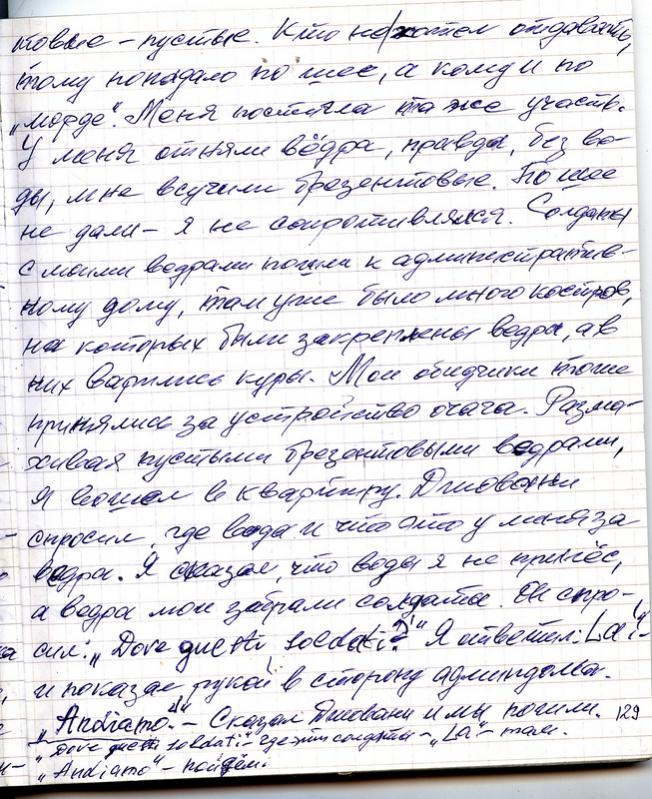 товые – пустые. Кто не хотел отдавать,
тому попадало по шее, а кому и по
„морде". Меня постигла та же участь.
У меня отняли вёдра, правда, без во-
ды, мне всучили брезентовые. По шее
не дали – я не сопротивлялся. Солдаты
с моими ведрами пошли к административ-
ному дому, там уже было много костров,
на которых были закреплены ведра, а в
них варились куры. Мои обидчики тоже
принялись за устройство очага. Разма-
хивая пустыми брезентовыми ведрами,
я вошел в квартиру. Джовани
спросил, где вода и что это у меня за
ведра. Я сказал, что воды я не принёс,
а ведра мои забрали солдаты. Он спро-
сил: „Dove questi soldati?" Я ответил: „La!" –
и показал рукой в сторону админдома.
„Andiamo!" – Сказал Джовани и мы пошли. 129
„Dove questi soldati – где эти солдаты – „La" – там.
„Andiamo" – пойдём.